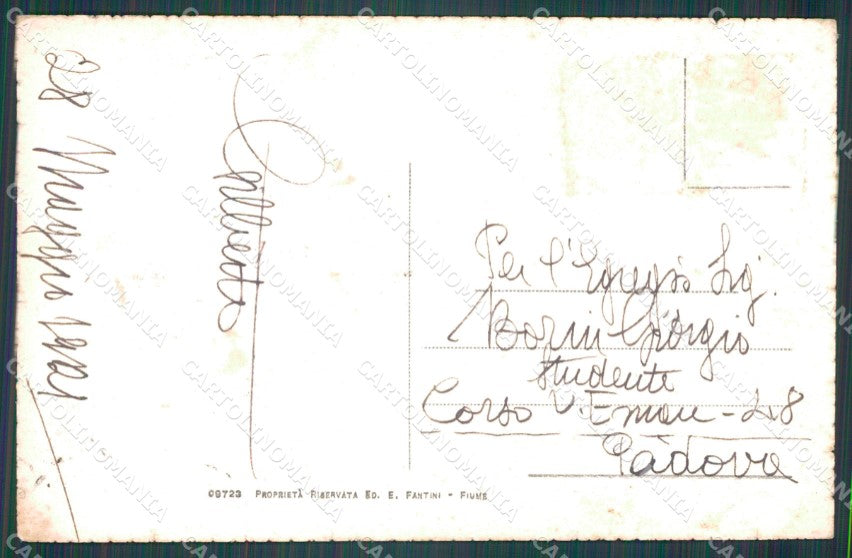 28 Maggio 1921
Per l'Egregio Sig.
Borin Giorgio
studente
Corso V. Eman - 28
Padova
09723 PROPRIETÀ RISERVATA ED. E. FANTINI - FIUME
CARTOLINOMANIA